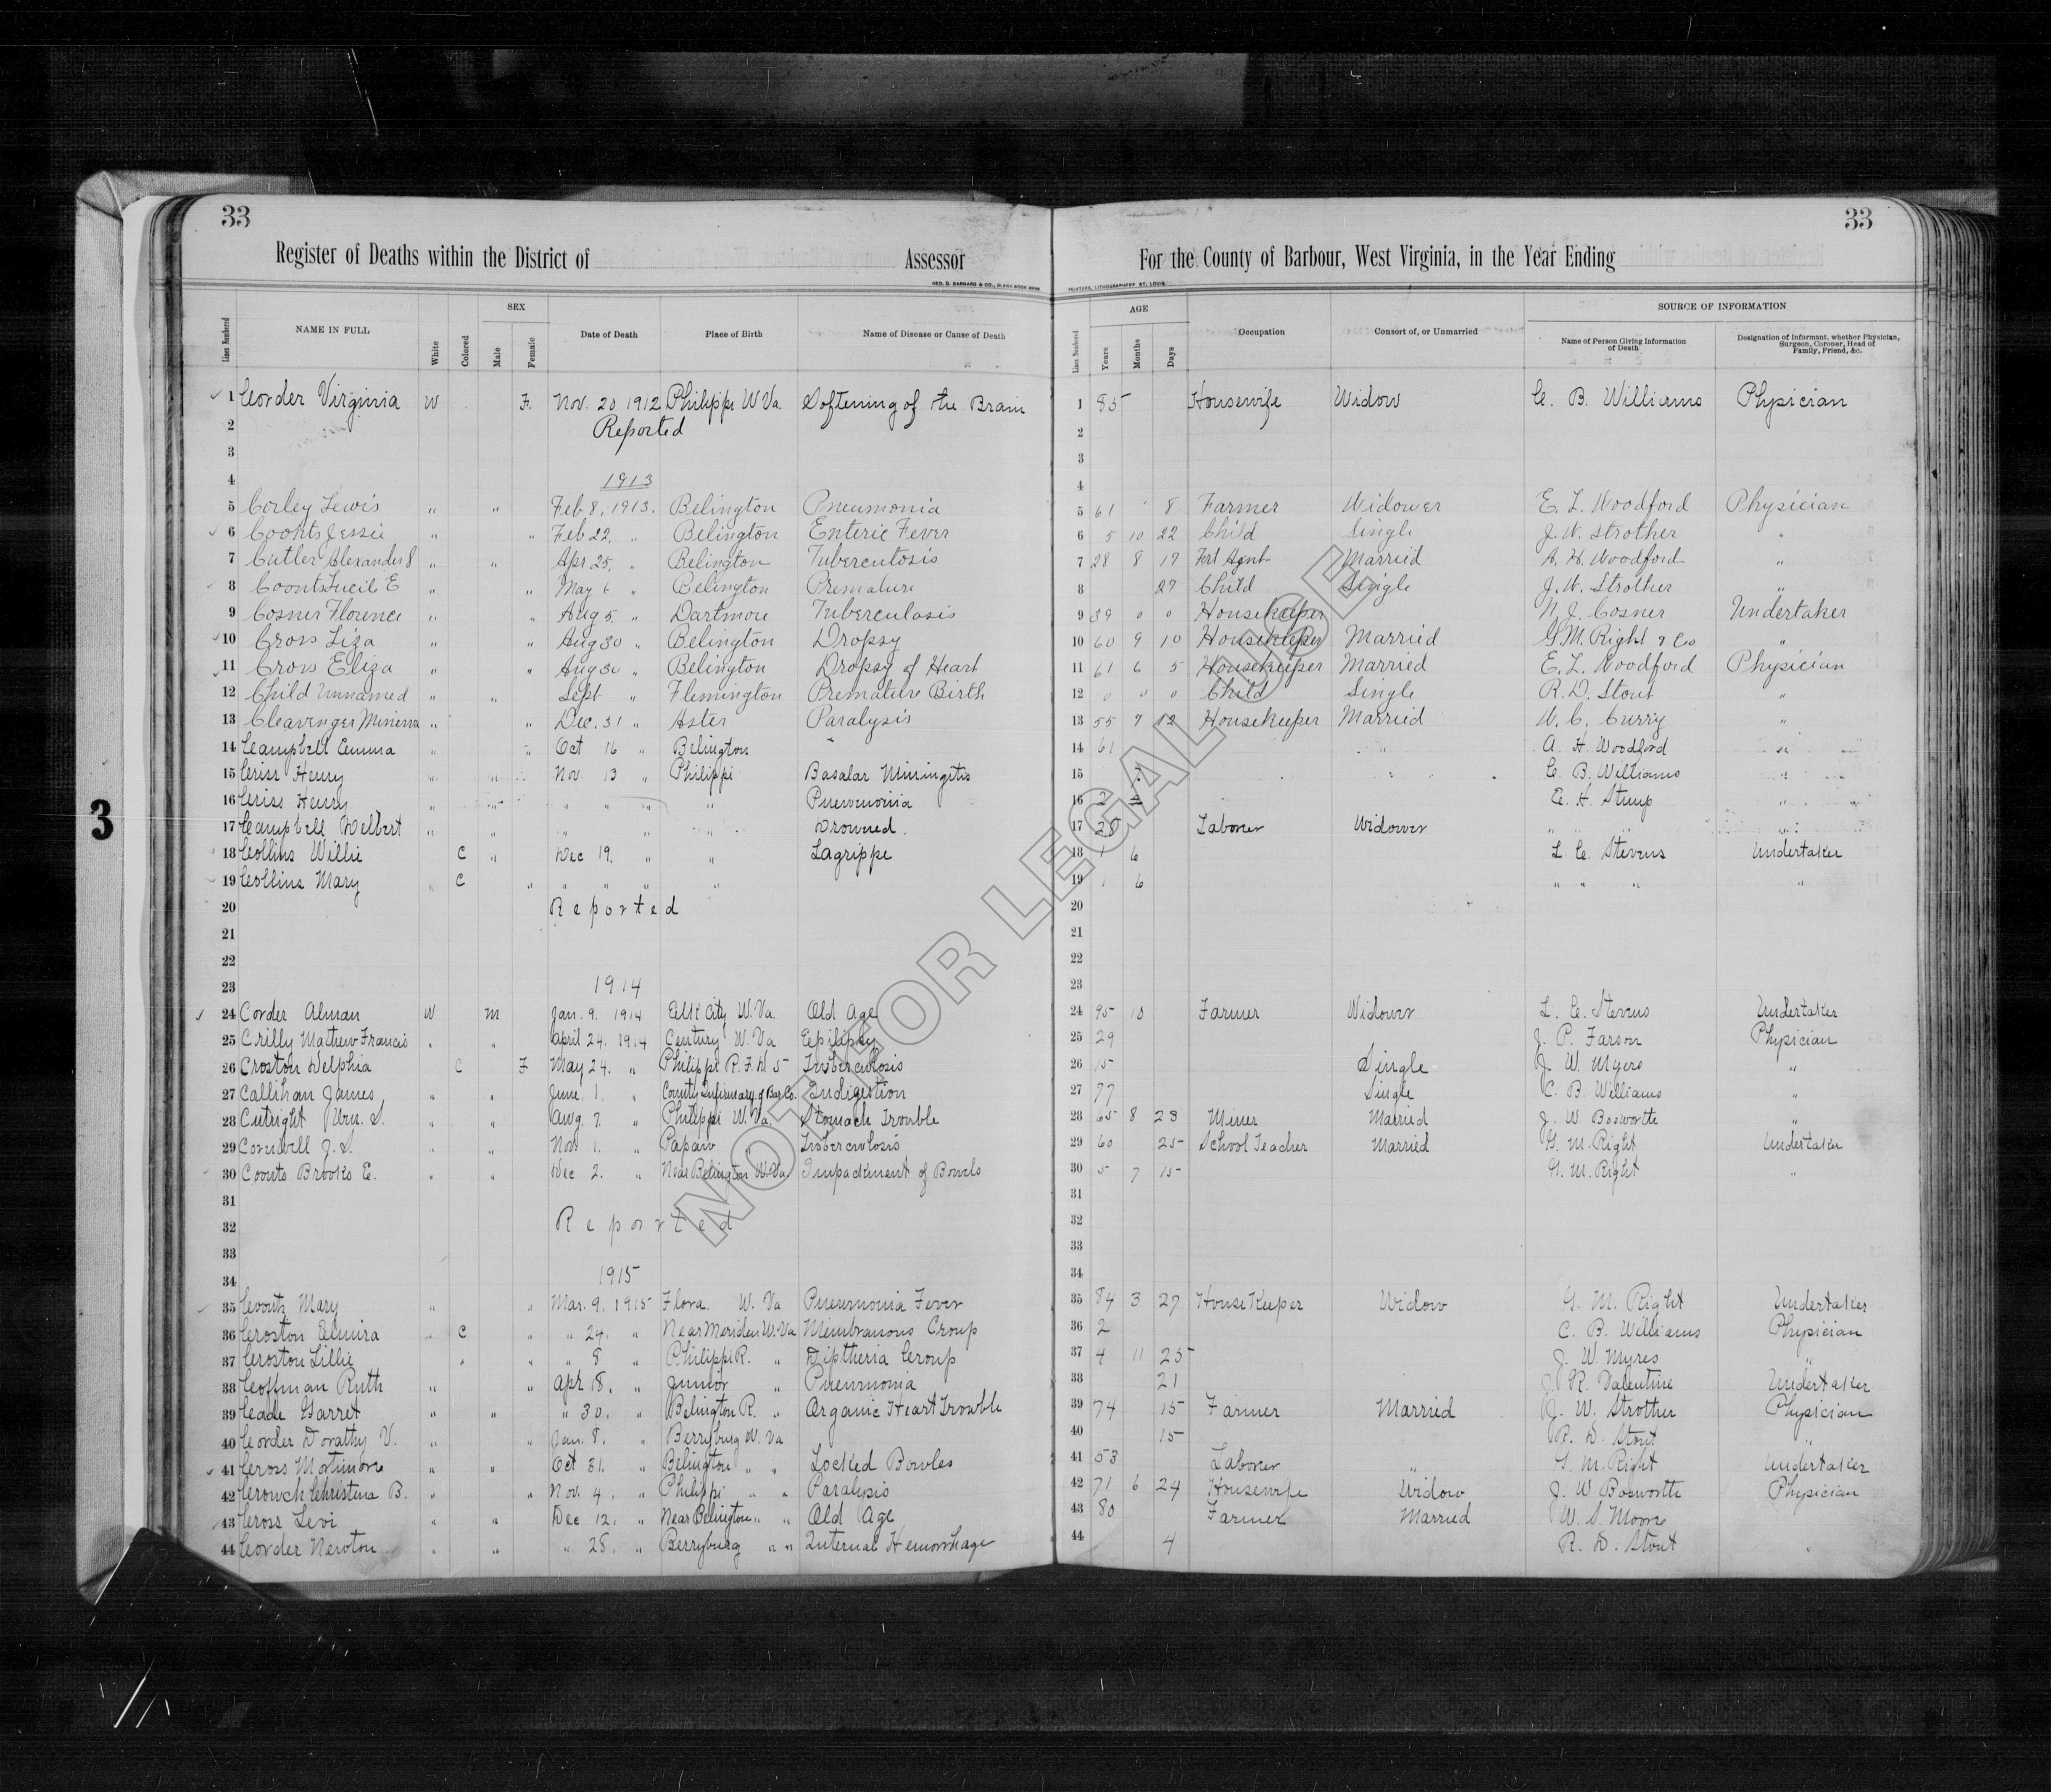 33
33
Register of Deaths within the District of Assessor
For the County of Barbour, West Virginia, in the Year Ending
GEO. D. BARNARD & CO., BLANK BOOK
PRINTERS, LITHOGRAPHERS, ST. LOUIS
Lines Numbered NAME IN FULL White Colored SEX Male Female Date of Death Place of Birth Name of Disease or Cause of Death
Lines Numbered AGE Years Months Days Occupation Consort of, or Unmarried SOURCE OF INFORMATION Name of Person Giving Information of Death Designation of Informant, whether Physician, Surgeon, Coroner, Head of Family, Friend, &c.
1 Corder Virginia W F. Nov. 20 1912 Philippi W Va. Softening of the Brain 1 85 Housewife Widow C. B. Williams Physician
2 Reported 2
3 3
4 1913 4
5 Corley Lewis " " Feb 8, 1913. Belington Pneumonia 5 61 8 Farmer Widower E. L. Woodford Physician
6 Coonts Jessie " " Feb 22, " Belington Enteric Fever 6 5 10 22 Child Single J. W. Strother "
7 Cutler Alexander S " " Apr 25, " Belington Tuberculosis 7 28 8 17 Married A. H. Woodford "
8 Coonts Lucil E " " May 6 " Belington Premature 8 27 Child Single J. W. Strother "
9 Cosner Florence " " Aug 5 " Dartmore Tuberculosis 9 39 0 0 Housekeeper N. J. Cosner Undertaker
10 Cross Liza " " Aug 30 " Belington Dropsy 10 60 9 10 Housekeeper Married G. M. Right & Co "
11 Cross Eliza " " Aug 30 " Belington Dropsy of Heart 11 61 6 5 Housekeeper Married E. L. Woodford Physician
12 Child Unnamed " " Sept " Flemington Premature Birth 12 0 0 0 Child Single R. D. Stout "
13 Cleavenger Minerva " " Dec. 31 " Aster Paralysis 13 55 7 12 Housekeeper Married W. C. Curry "
14 Campbell Emma " " Oct 16 " Belington " 14 61 " A. H. Woodford "
15 Criss Henry " " Nov. 13 " Philippi Basalar Miningitis 15 C. B. Williams "
16 Criss Henry " " " " " " Pneumonia 16 2 E. H. Stump "
17 Campbell Delbert " " " " " Drowned. 17 Laborer Widower " " " "
18 Collins Willie C " Dec 19. " " Lagrippe 18 1 6 L. C. Stevens Undertaker
19 Collins Mary " C " " " " " 19 1 6 " " " "
20 Reported 20
21 21
22 22
23 1914 23
24 Corder Alman W M Jan. 9. 1914 Elk City W. Va. Old Age 24 95 10 Farmer Widower L. C. Stevens Undertaker
25 Crilly Mathew Francis " " April 24. 1914 Century W. Va Epilipsy 25 29 J. P. Farson Physician
26 Croston Delphia C F May 24. " Philippi R. F. D 5 Tuberculosis 26 15 Single J. W. Myers "
27 Callihan James " " June. 1. " County Infirmary of Bar. Co. Indigestion 27 77 Single C. B. Williams "
28 Cutright Wm. S. " " Aug. 7. " Philippi W. Va. Stomach Trouble 28 65 8 23 Miner Married J. W Bosworth "
29 Cornwell J. S. " " Nov 1. " Papaw " Tuberculosis 29 60 25 School Teacher Married G. M. Right Undertaker
30 Coonts Brooks E. " " Dec 2. " Near Belington W. Va. Impackment of Bowls 30 5 7 15 G. M. Right "
31 31
32 Reported 32
33 33
34 1915 34
35 Mary " " Mar. 9. 1915 Flora, W. Va Pneumonia Fever 35 84 3 27 House Keeper Widow G. M. Right Undertaker
36 Croston Elmira " C " " 24. " Near Meriden W. Va Membranous Croup 36 2 C. B. Williams Physician
37 Croston Lillie " " " 8 " Philippi R. " Diptheria Croup 37 4 11 25 J. W. Myres "
38 Coffman Ruth " " Apr. 18. " Junior " Pneumonia 38 21 J. R. Valentine Undertaker
39 Cade Garret " " " 30. " Belington R. " Organic Heart Trowble 39 74 15 Farmer Married J. W. Strother Physician
40 Corder Dorathy V. " " Jan. 8. " Berryburg W. Va 40 15 R. D. Stout "
41 Cross Mortimore " " Oct 31. " Belington " " Locked Bowles 41 53 Laborer " G. M. Right Undertaker
42 Crowch Christena B. " " Nov. 4. " Philippi " " Paralysis 42 71 6 24 Housewife Widow J. W Bosworth Physician
43 Cross Levi " " Dec 12. " Near Belington " " Old Age 43 80 Farmer Married W. S. Moore
44 Corder Newton " " " 28. " Berryburg " " Internal Hemorrhage 44 4 R. D. Stout "
3
NOT FOR LEGAL USE